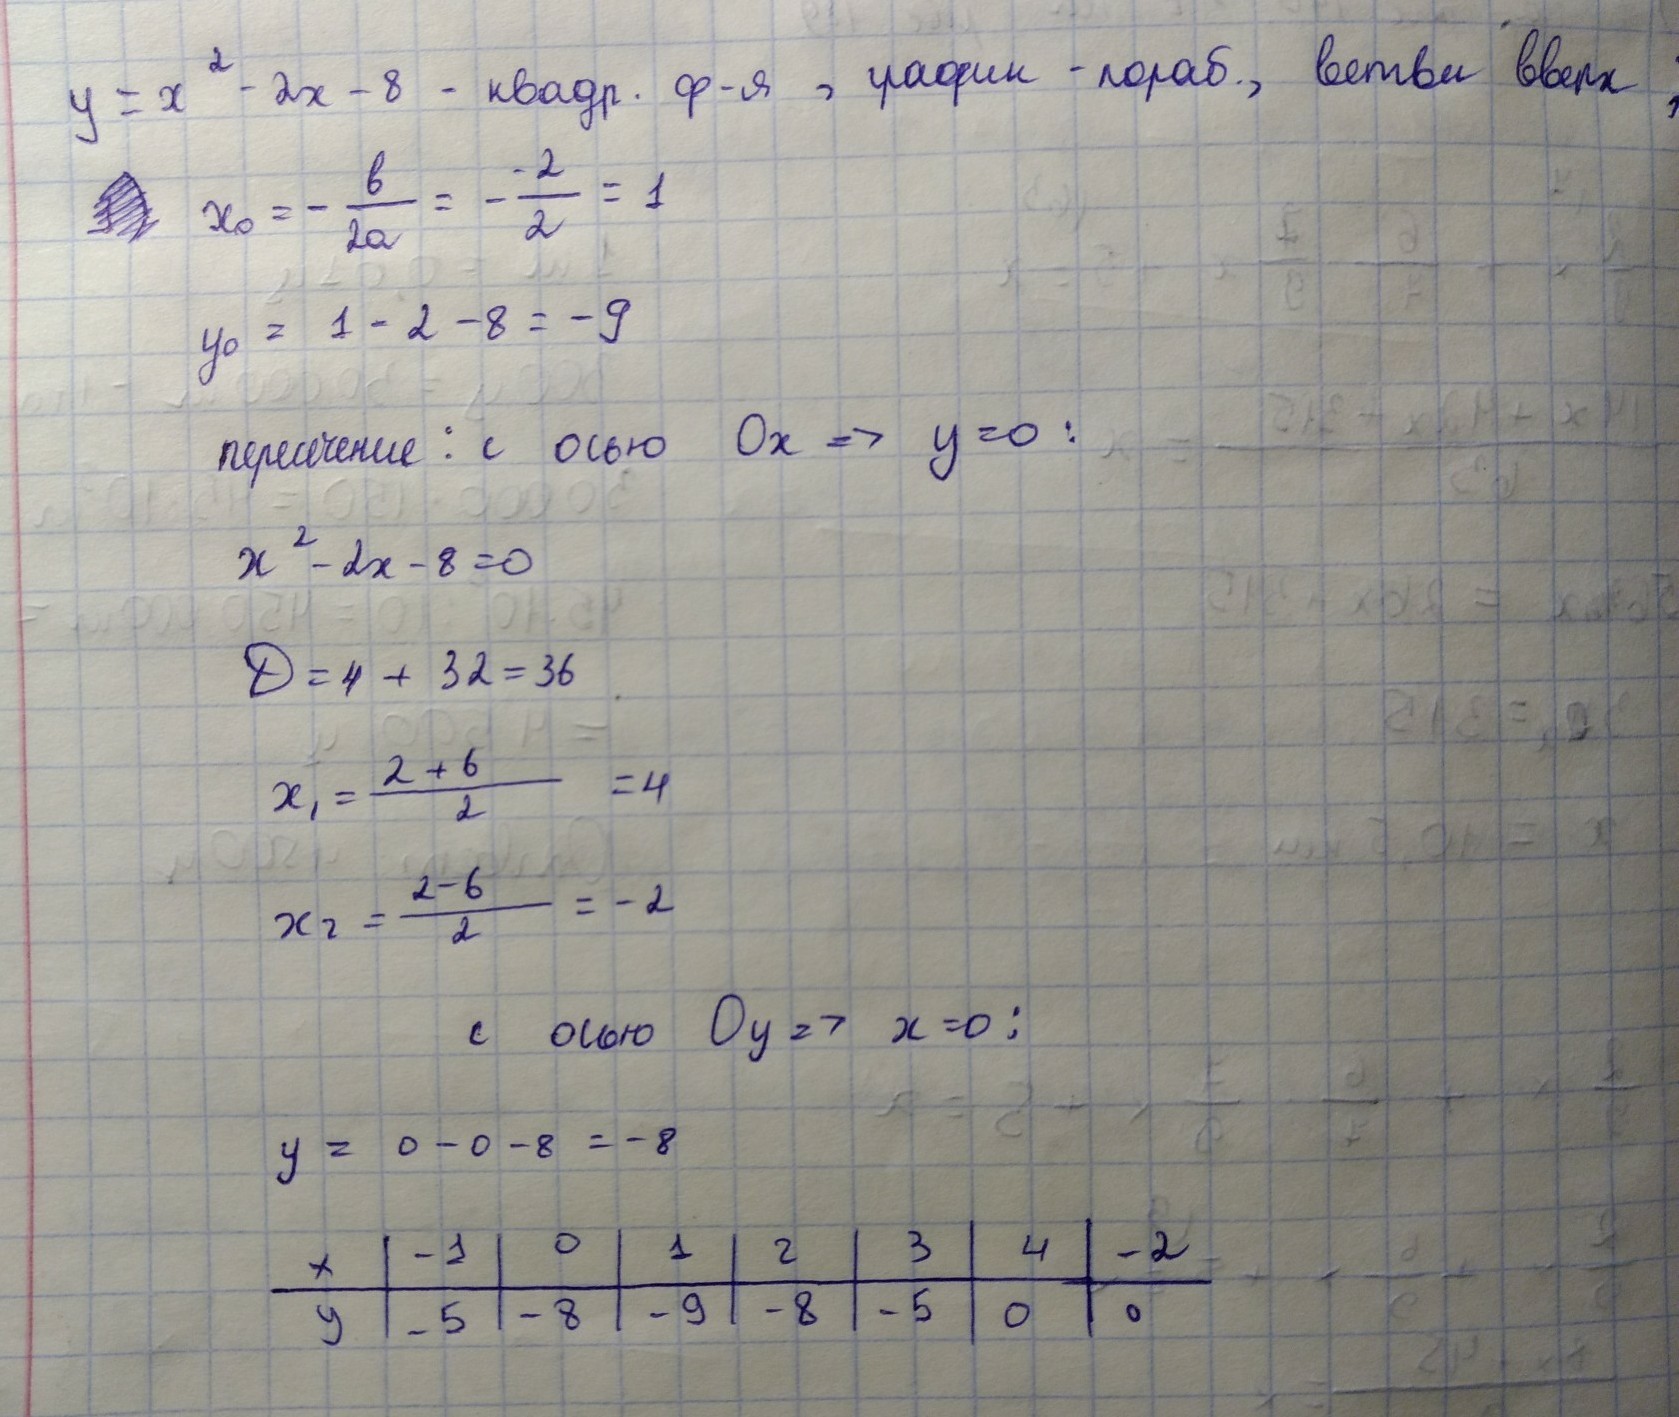 y = x² - 2x - 8 - квадр. ф-я, график - параб., ветви вверх;
x₀ = - в/2a = - -2/2 = 1
y₀ = 1 - 2 - 8 = -9
пересечение: с осью Ox => y=0:
x² - 2x - 8 = 0
D = 4 + 32 = 36
x₁ = 2+6/2 = 4
x₂ = 2-6/2 = -2
с осью Oy => x=0:
y = 0 - 0 - 8 = -8
x | -1 | 0 | 1 | 2 | 3 | 4 | -2
y | -5 | -8 | -9 | -8 | -5 | 0 | 0